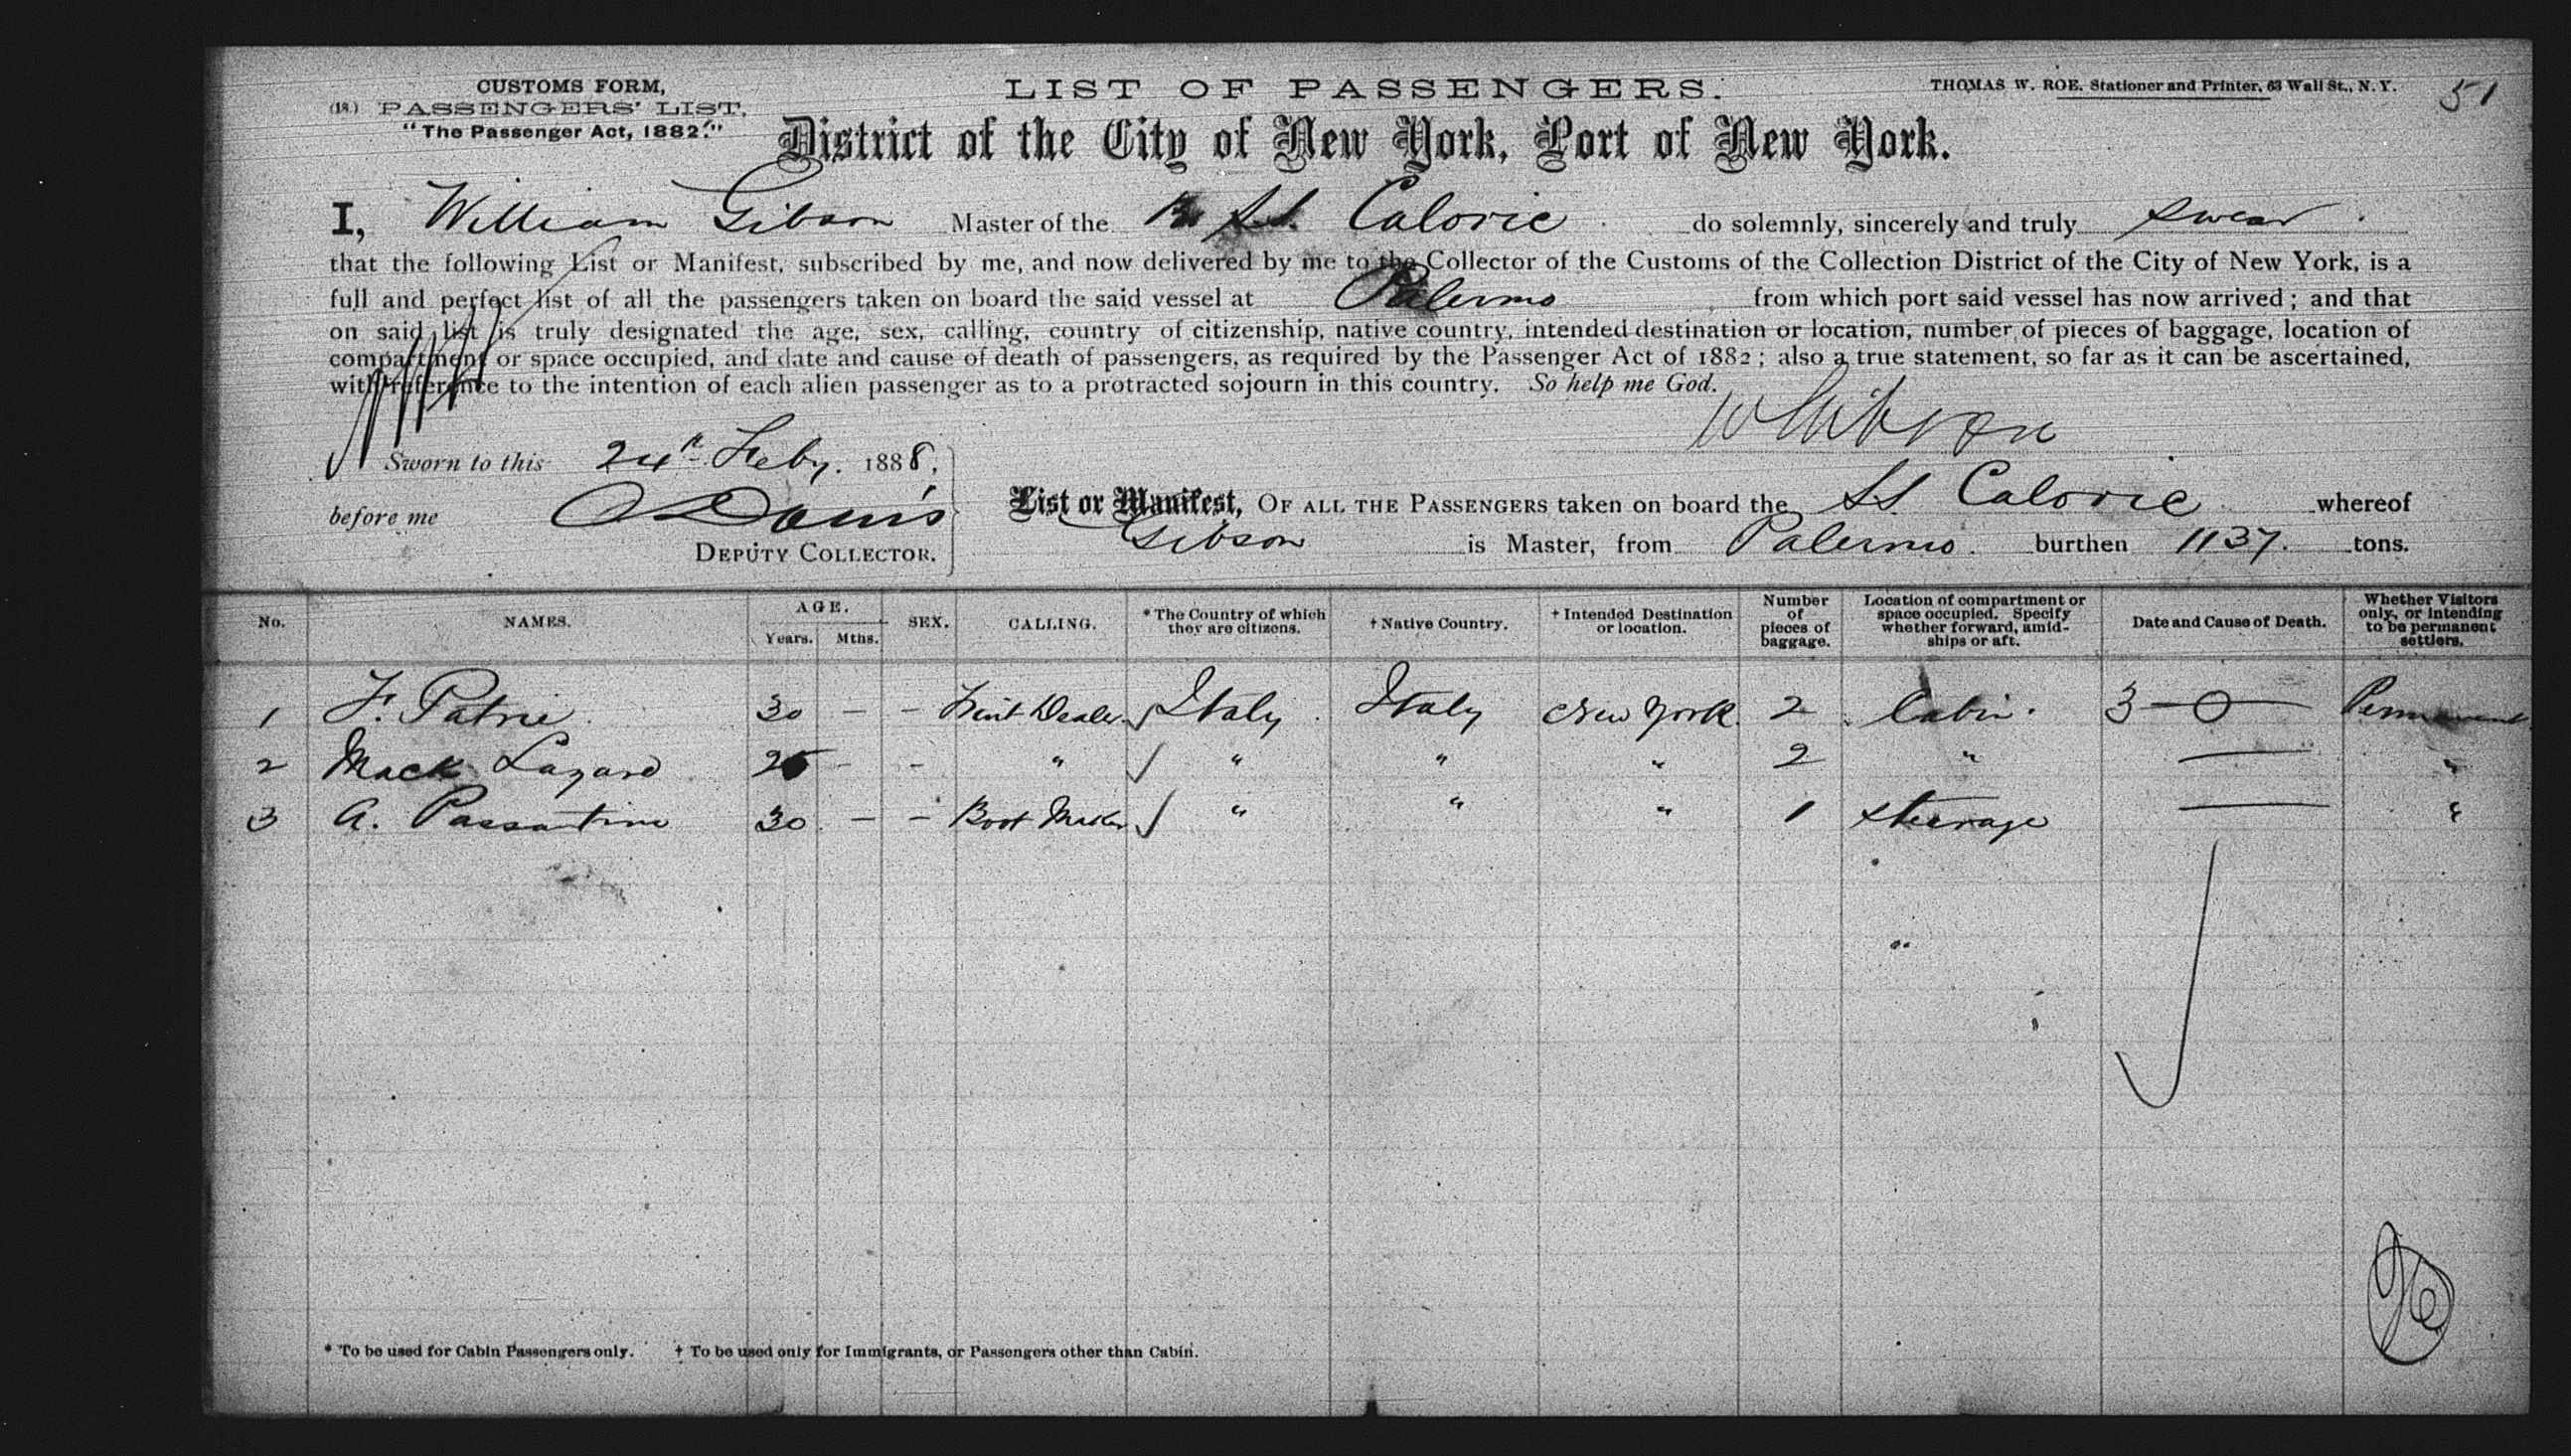 CUSTOMS FORM,
(18.) PASSENGERS' LIST,
"The Passenger Act, 1882."
LIST OF PASSENGERS.
THOMAS W. ROE, Stationer and Printer, 63 Wall St., N. Y.
51
District of the City of New York, Port of New York.
I, William Gibson Master of the Br SS. Caloric do solemnly, sincerely and truly swear.
that the following List or Manifest, subscribed by me, and now delivered by me to the Collector of the Customs of the Collection District of the City of New York, is a
full and perfect list of all the passengers taken on board the said vessel at Palermo from which port said vessel has now arrived; and that
on said list is truly designated the age, sex, calling, country of citizenship, native country, intended destination or location, number of pieces of baggage, location of
compartment or space occupied, and date and cause of death of passengers, as required by the Passenger Act of 1882; also a true statement, so far as it can be ascertained,
with reference to the intention of each alien passenger as to a protracted sojourn in this country. So help me God.
W Gibson
Sworn to this 24th Feby. 1888,
before me Davis
DEPUTY COLLECTOR.
List or Manifest, OF ALL THE PASSENGERS taken on board the SS. Caloric whereof
Gibson is Master, from Palermo. burthen 1137. tons.
No. NAMES. AGE. Years. Mths. SEX. CALLING. * The Country of which they are citizens. † Native Country. † Intended Destination or location. Number of pieces of baggage. Location of compartment or space occupied. Specify whether forward, amidships or aft. Date and Cause of Death. Whether Visitors only, or intending to be permanent settlers.
1 F. Patrie 30 — — Fruit Dealer Italy Italy New York 2 Cabin. 3 —0— Permanent
2 Mack Lazard 25 - - " " " " 2 " — "
3 A. Passantino 30 — — Boot Maker " " " 1 steerage — "
* To be used for Cabin Passengers only. † To be used only for Immigrants, or Passengers other than Cabin.